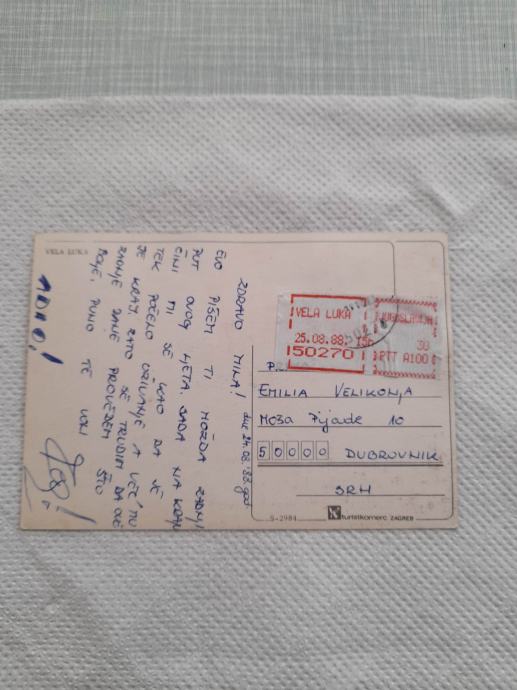 VELA LUKA
ZDRAVO MILA!
dne 24.08.88. god
EVO PIŠEM TI MOŽDA ZADNJI
PUT OVOG LJETA. SADA NA KRAJU
ČINI MI SE KAO DA JE
TEK POČELO UŽIVANJE A VEĆ MU
JE KRAJ. ZATO SE TRUDIM DA OVE
ZADNJE DANE PROVEDEM ŠTO
BOLJE. PUNO TE VOLI
ADIO!
VELA LUKA
25.08.88.
50270
JUGOSLAVIJA
30
PTT A100
EMILIA VELIKONJA
Moša Pijade 10
50000 DUBROVNIK
SRH
S-2984
turistkomerc ZAGREB